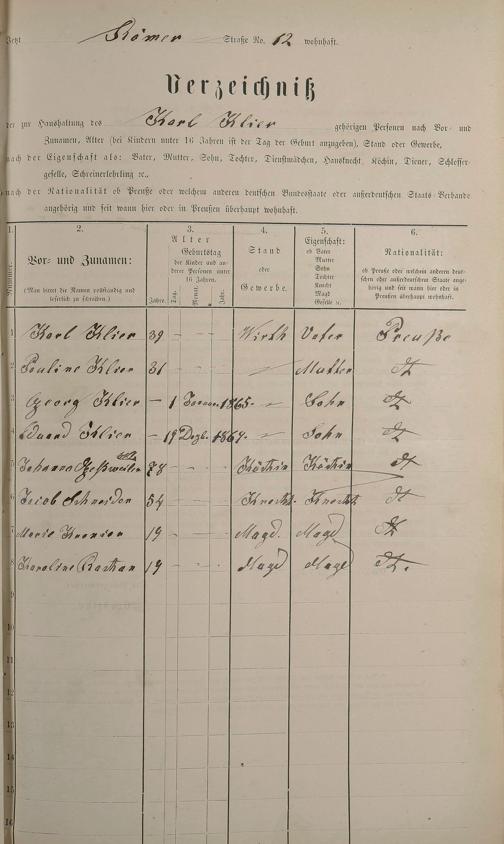 Jetzt Römer Straße No. 12 wohnhaft.
Verzeichniß
der zur Haushaltung des Karl Klier gehörigen Personen nach Vor- und
Zunamen, Alter (bei Kindern unter 16 Jahren ist der Tag der Geburt anzugeben), Stand oder Gewerbe,
nach der Eigenschaft als: Vater, Mutter, Sohn, Tochter, Dienstmädchen, Hausknecht, Köchin, Diener, Schlosser-
geselle, Schreinerlehrling ꝛc.,
nach der Nationalität ob Preuße oder welchem anderen deutschen Bundesstaate oder außerdeutschen Staats-Verbande
angehörig und seit wann hier oder in Preußen überhaupt wohnhaft.
1. 2. 3. 4. 5. 6.
Nummer.
Vor- und Zunamen:
(Man bittet die Namen vollständig und
leserlich zu schreiben.)
Alter
Geburtstag
der Kinder und an-
derer Personen unter
16 Jahren.
Jahre. Tag. Monat. Jahr.
Stand
oder
Gewerbe.
Eigenschaft:
ob Vater
Mutter
Sohn
Tochter
Knecht
Magd
Geselle ꝛc.
Nationalität:
ob Preuße oder welchem anderen deut-
schen oder außerdeutschen Staate ange-
hörig und seit wann hier oder in
Preußen überhaupt wohnhaft.
1 Karl Klier 39 — Wirth Vater Preuße
2 Pauline Klier 31 — Mutter dt
3 Georg Klier — 1 Januar 1865. Sohn dt
4 Eduard Klier — 19 Dezb. 1869. Sohn dt
5 Johanna 28 Köchin Köchin dt
6 Jacob Schneider 54 Knecht Knecht dt
7 Marie 19 Magd. Magd dt
8 Karoline 19 Magd Magd dt.
9
10
11
12
13
14
15
16